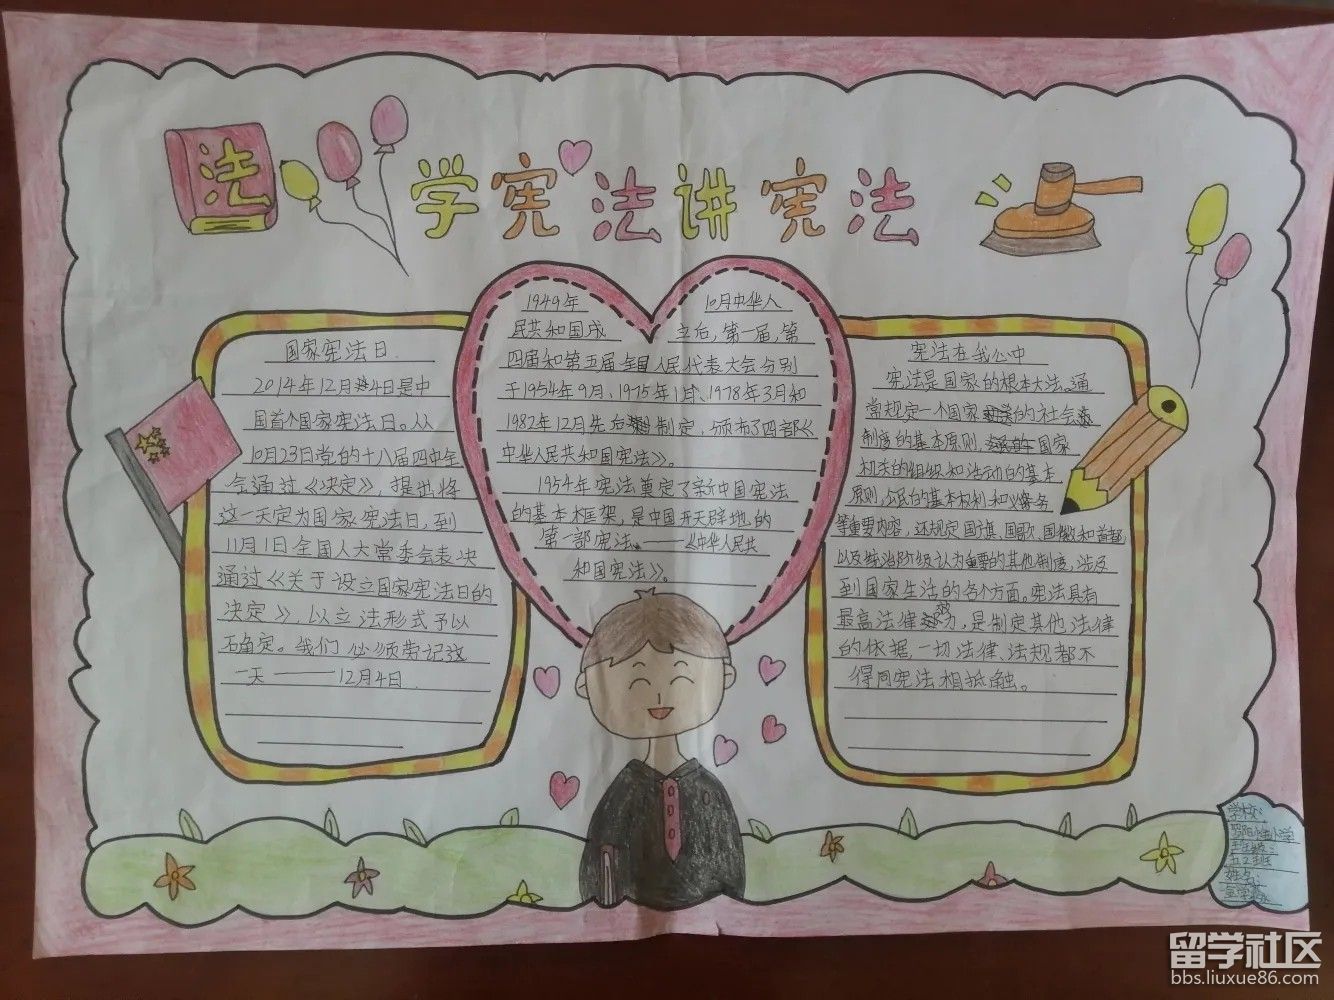 法
学宪法讲宪法
国家宪法日
2014年12月4日是中
国首个国家宪法日。从
10月23日党的十八届四中全
会通过《决定》，提出将
这一天定为国家宪法日，到
11月1日全国人大常委会表决
通过《关于设立国家宪法日的
决定》，以立法形式予以
确定。我们必须劳记这
一天——12月4日
1949年 10月中华人
民共和国成 立后，第一届，第
四届和第五届全国人民代表大会分别
于1954年9月、1975年1月、1978年3月和
1982年12月先后制定，颁布了四部《
中华人民共和国宪法》。
1954年宪法奠定了新中国宪法
的基本框架，是中国开天辟地的
第一部宪法。——《中华人民共
和国宪法》。
宪法在我心中
宪法是国家的根本大法。通
常规定一个国家的社会
制度的基本原则，国家
机关的组织和活动的基本
原则，的基本权利和义务
等重要内容，还规定国旗、国歌、国徽和首都
以及统治阶级认为重要的其他制度，涉及
到国家生活的各个方面。宪法具有
最高法律效力，是制定其他法律
的依据，一切法律、法规都不
得同宪法相抵触。
学校：
小学
班级：
五2班
姓名：
留学社区
bbs.liuxue86.com